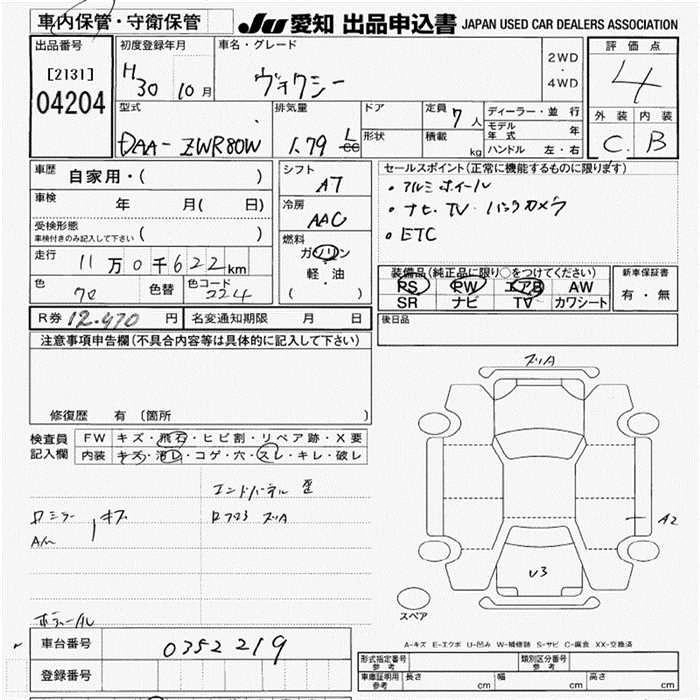 車内保管・守衛保管
JU 愛知 出品申込書 JAPAN USED CAR DEALERS ASSOCIATION
出品番号
[2131]
04204
初度登録年月
H30 10月
車名・グレード
ヴォクシー
2WD
・
4WD
評価点
4
外装 内装
C B
型式
DAA-ZWR80W
排気量
1.79 L
cc
ドア
形状
定員
7人
積載
kg
ディーラー・並行
モデル年式 年
ハンドル 左・右
車歴 自家用・( )
車検 年 月( 日)
受検形態
車検付きのみ記入して下さい ( )
走行 11万0千622km
色 色替 色コード
224
シフト
AT
冷房
AAC
燃料
ガソリン
軽・油
( )
セールスポイント(正常に機能するものに限ります)
・アルミホイール
・ナビ、TV・バックカメラ
・ETC
装備品(純正品に限り○をつけてください)
PS PW エアB AW
SR ナビ TV カワシート
新車保証書
有・無
後日品
R券 12,470 円 名変通知期限 月 日
注意事項申告欄(不具合内容等は具体的に記入して下さい)
修復歴 有 〔箇所 〕
検査員記入欄
FW キズ・飛石・ヒビ割・リペア跡・X要
内装 キズ・汚レ・コゲ・穴・スレ・キレ・破レ
キズ
スリA
A2
U3
スペア
A-キズ E-エクボ U-凹み W-補修跡 S-サビ C-腐食 XX-交換済
車台番号 0352219
登録番号
形式指定番号
参考
類別区分番号
参考
車庫証明用
参考
長さ cm 幅 cm 高さ cm